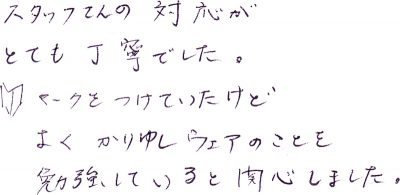 スタッフさんの対応が
とても丁寧でした。
マークをつけていたけど
よくかりゆしウェアのことを
勉強していると関心しました。